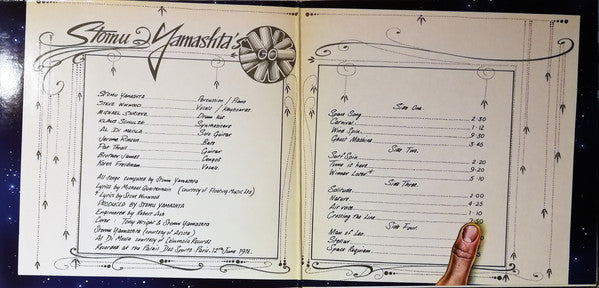 Stomu Yamashta's
GO
Stomu Yamashta Percussion / Piano
Steve Winwood Vocals / Keyboards
Michael Shrieve Drum Kit
Klaus Schulze Synthesizers
Al Di Meola Solo Guitar
Jerome Rimson Bass
Pat Thrall Guitar
Brother James Congas
Karen Friedman Vocals.
All songs composed by Stomu Yamashta
Lyrics by Michael Quartermain (courtesy of Floating Music Ltd)
* Lyrics by Steve Winwood
Produced by Stomu Yamashta
Engineered by Robert Ash
Cover : Tony Wright & Stomu Yamashta
Stomu Yamashta (courtesy of Arista)
Al Di Meola courtesy of Columbia Records
Recorded at the Palais Des Sports Paris 12th June 1976.
Side One.
Space Song 2·30
Carnival 1·12
Wind Spin 9·30
Ghost Machine 3·46
Side Two.
Surf Spin 2·20
Time is here 9·20
Winner Loser * 5·10
Side Three.
Solitude 2·00
Nature 4·25
Air voice 1·10
Crossing the line 7·50
Side Four.
Man of Leo
Stellar
Space Requiem